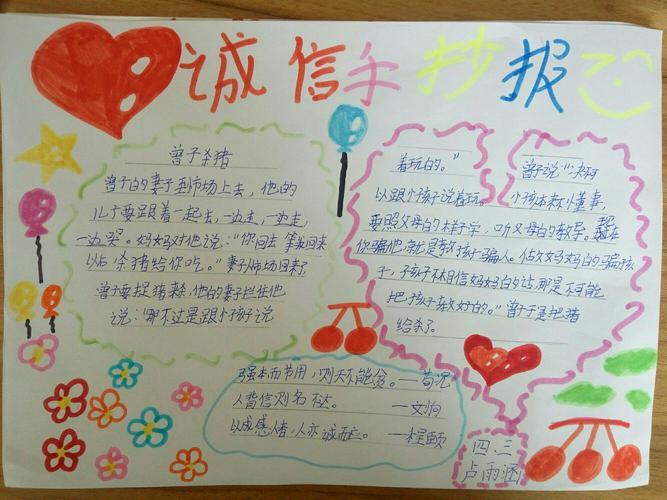 诚信手抄报
曾子杀猪
曾子的妻子到市场上去，他的
儿子要跟着一起去，一边走，一边走，
一边哭。妈妈对他说：“你回去 等我回来
以后 杀猪给你吃。”妻子从市场回来了
曾子要捉猪来，他的妻子拦住他
说：“那不过是跟小孩子说
着玩的。” 曾子说：“决不可
以跟小孩子说着玩。 小孩本来不懂事，
要照父母的样子学，听父母的教导。现在
你骗他，就是教孩子骗人。做妈妈的骗孩
子，孩子不相信妈妈的话，那是不可能
把孩子教好的。”曾子于是把猪
给杀了。
强本而节用，则天不能贫。——荀况
人背信则名不达。 ——文向
以诚感人者，人亦诚而应。 ——程颐
四.三
卢雨涵